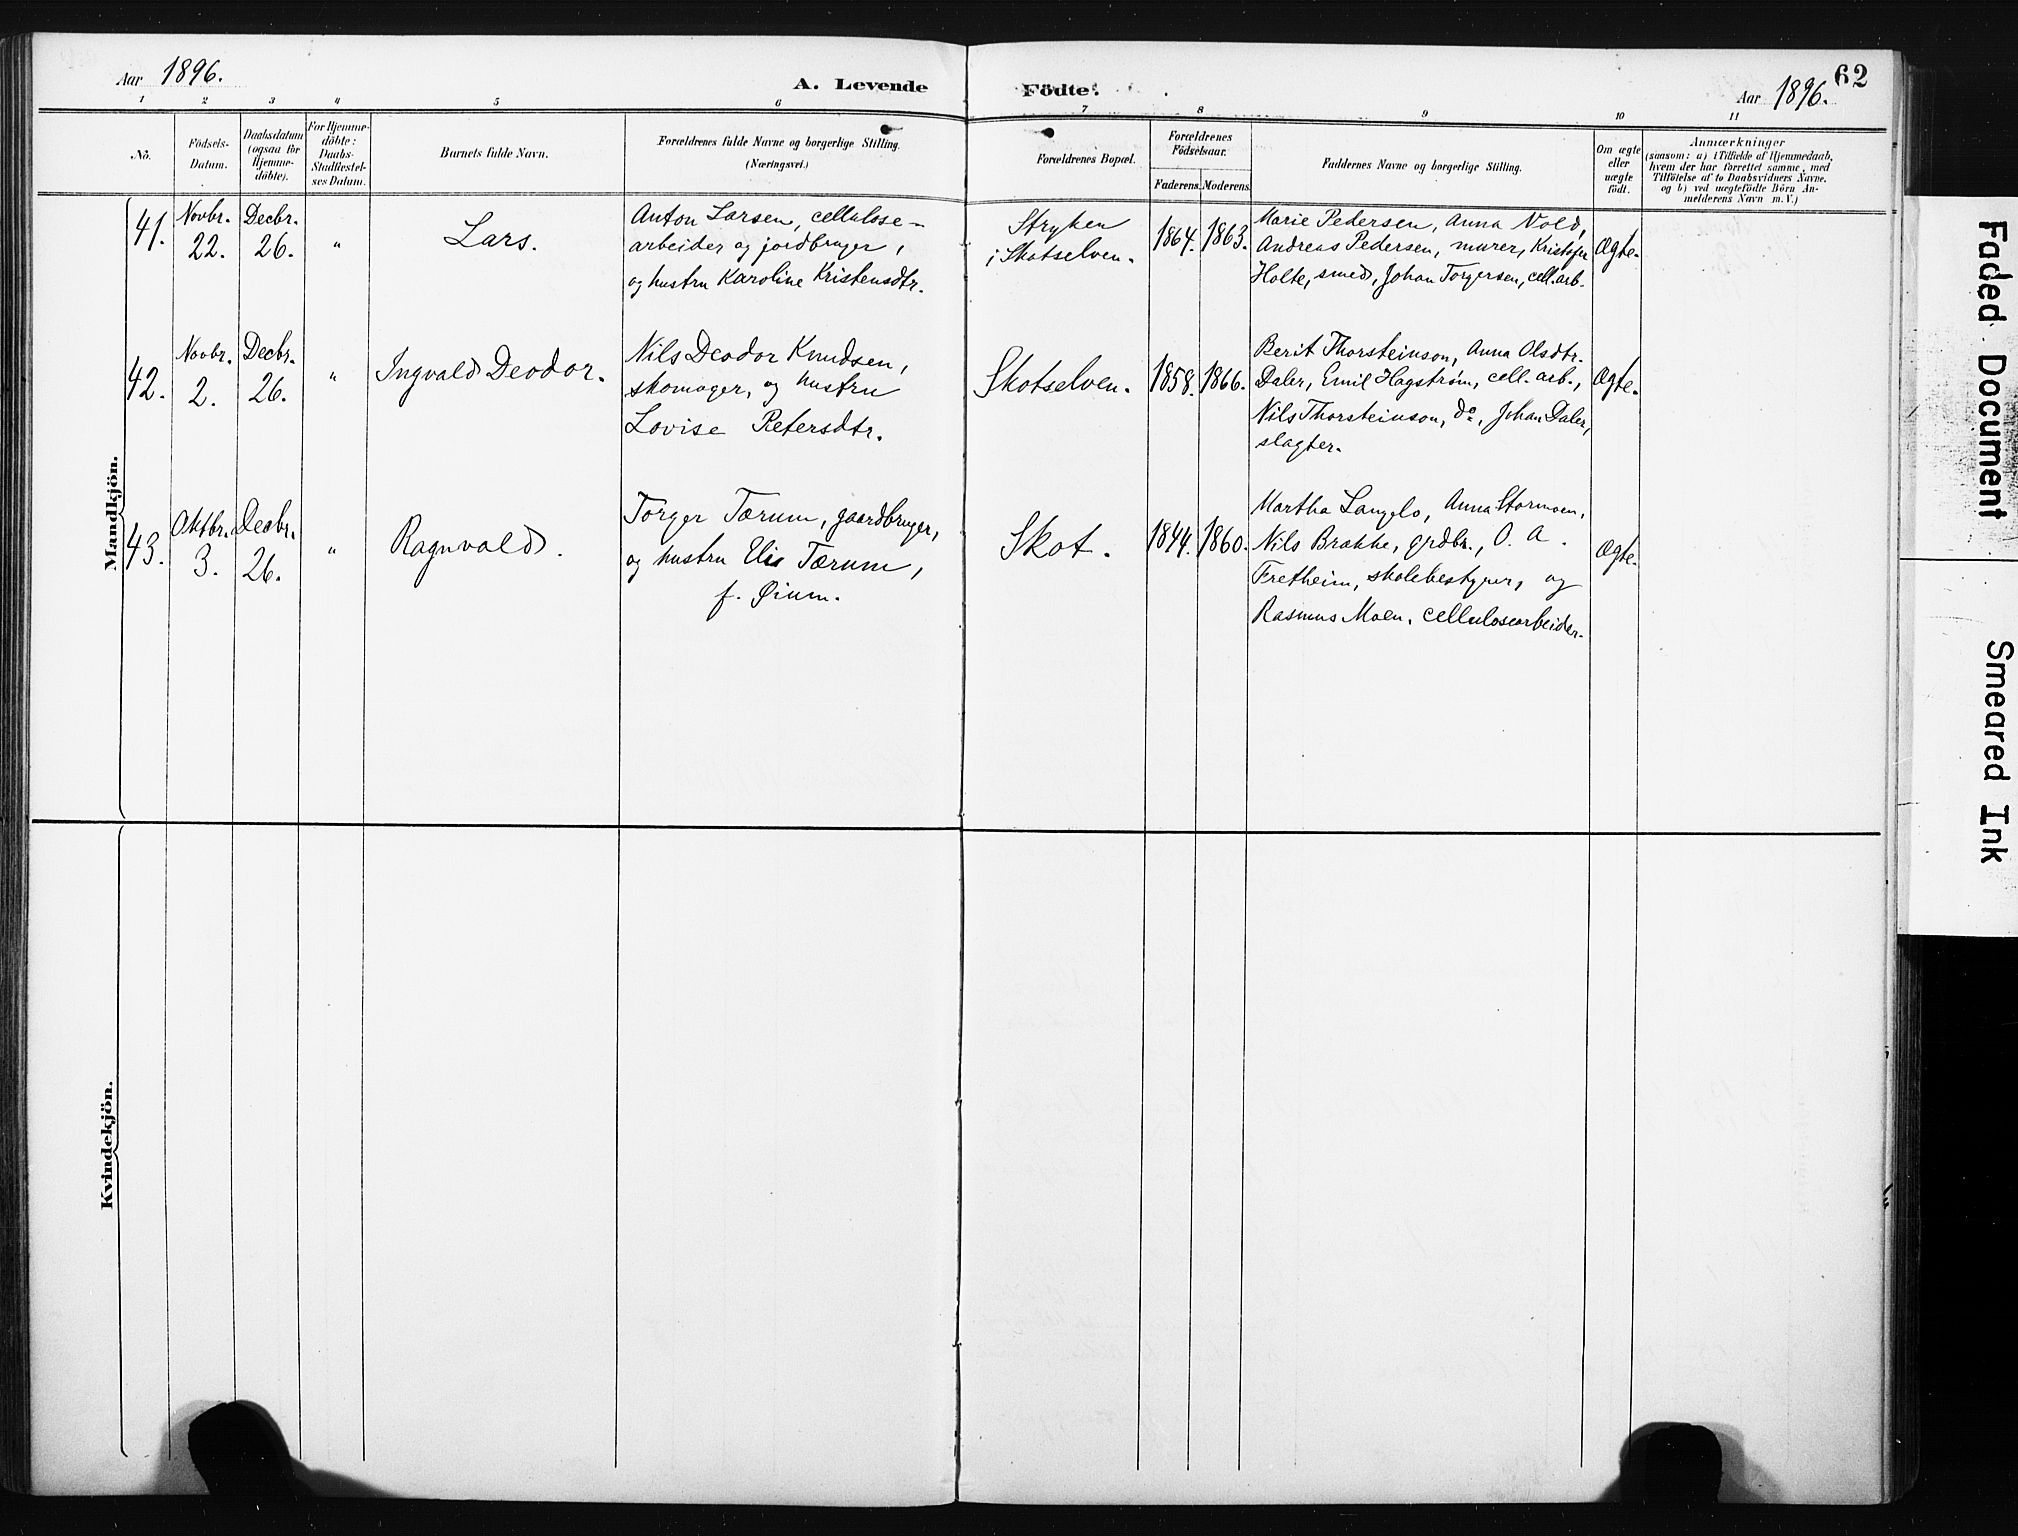 Aar 1896.
A. Levende Födte.
Aar 1896.
62
1 2 3 4 5 6 7 8 9 10 11
No.
Födsels-
Datum.
Daabsdatum
(ogsaa for
Hjemme-
döbte).
For Hjemme-
döbte:
Daabs-
Stadfæstel-
ses Datum.
Barnets fulde Navn.
Forældrenes fulde Navne og borgerlige Stilling.
(Næringsvei.)
Forældrenes Bopæl.
Forældrenes
Födselsaar.
Faderens. Moderens.
Faddernes Navne og borgerlige Stilling.
Om ægte
eller
uægte
født.
Anmærkninger
(saasom: a) i Tilfælde af Hjemmedaab,
hvem der har forrettet samme, med
Tilföielse af to Daabsvidners Navne,
og b) ved uægtefödte Börn An-
melderens Navn m. V.)
Mandkjön.
41.
Novbr.
22.
Decbr.
26.
"
Lars.
Anton Larsen, cellulose-
arbeider og jordbruger,
og hustru Karoline Kristensdtr.
Stryken
i Skotselven.
1864. 1863.
Marie Pedersen, Anna Nold,
Andreas Pedersen, murer, Kristofer
Holte, smed, Johan Torgersen, cell. arb.
Ægte.
42.
Novbr.
2.
Decbr.
26.
"
Ingvald Deodor.
Nils Deodor Knudsen,
skomager, og hustru
Lovise Petersdtr.
Skotselven.
1858. 1866.
Berit Thorsteinson, Anna Olsdtr.
Daler, Emil Hagstrøm, cell. arb.,
Nils Thorsteinson, do., Johan Daler,
slagter.
Ægte.
43.
Oktbr.
3.
Decbr.
26.
"
Ragnvald.
Torger Tærum, gaardbruger,
og hustru Elis Tærum,
f. Øium.
Skot.
1844. 1860.
Martha Langelo, Anna Stormoen,
Nils Brakke, grdbr., O. A.
Fretheim, skolebestyrer, og
Rasmus Moen, cellulosearbeider.
Ægte.
Kvindekjön.
Faded Document
Smeared Ink